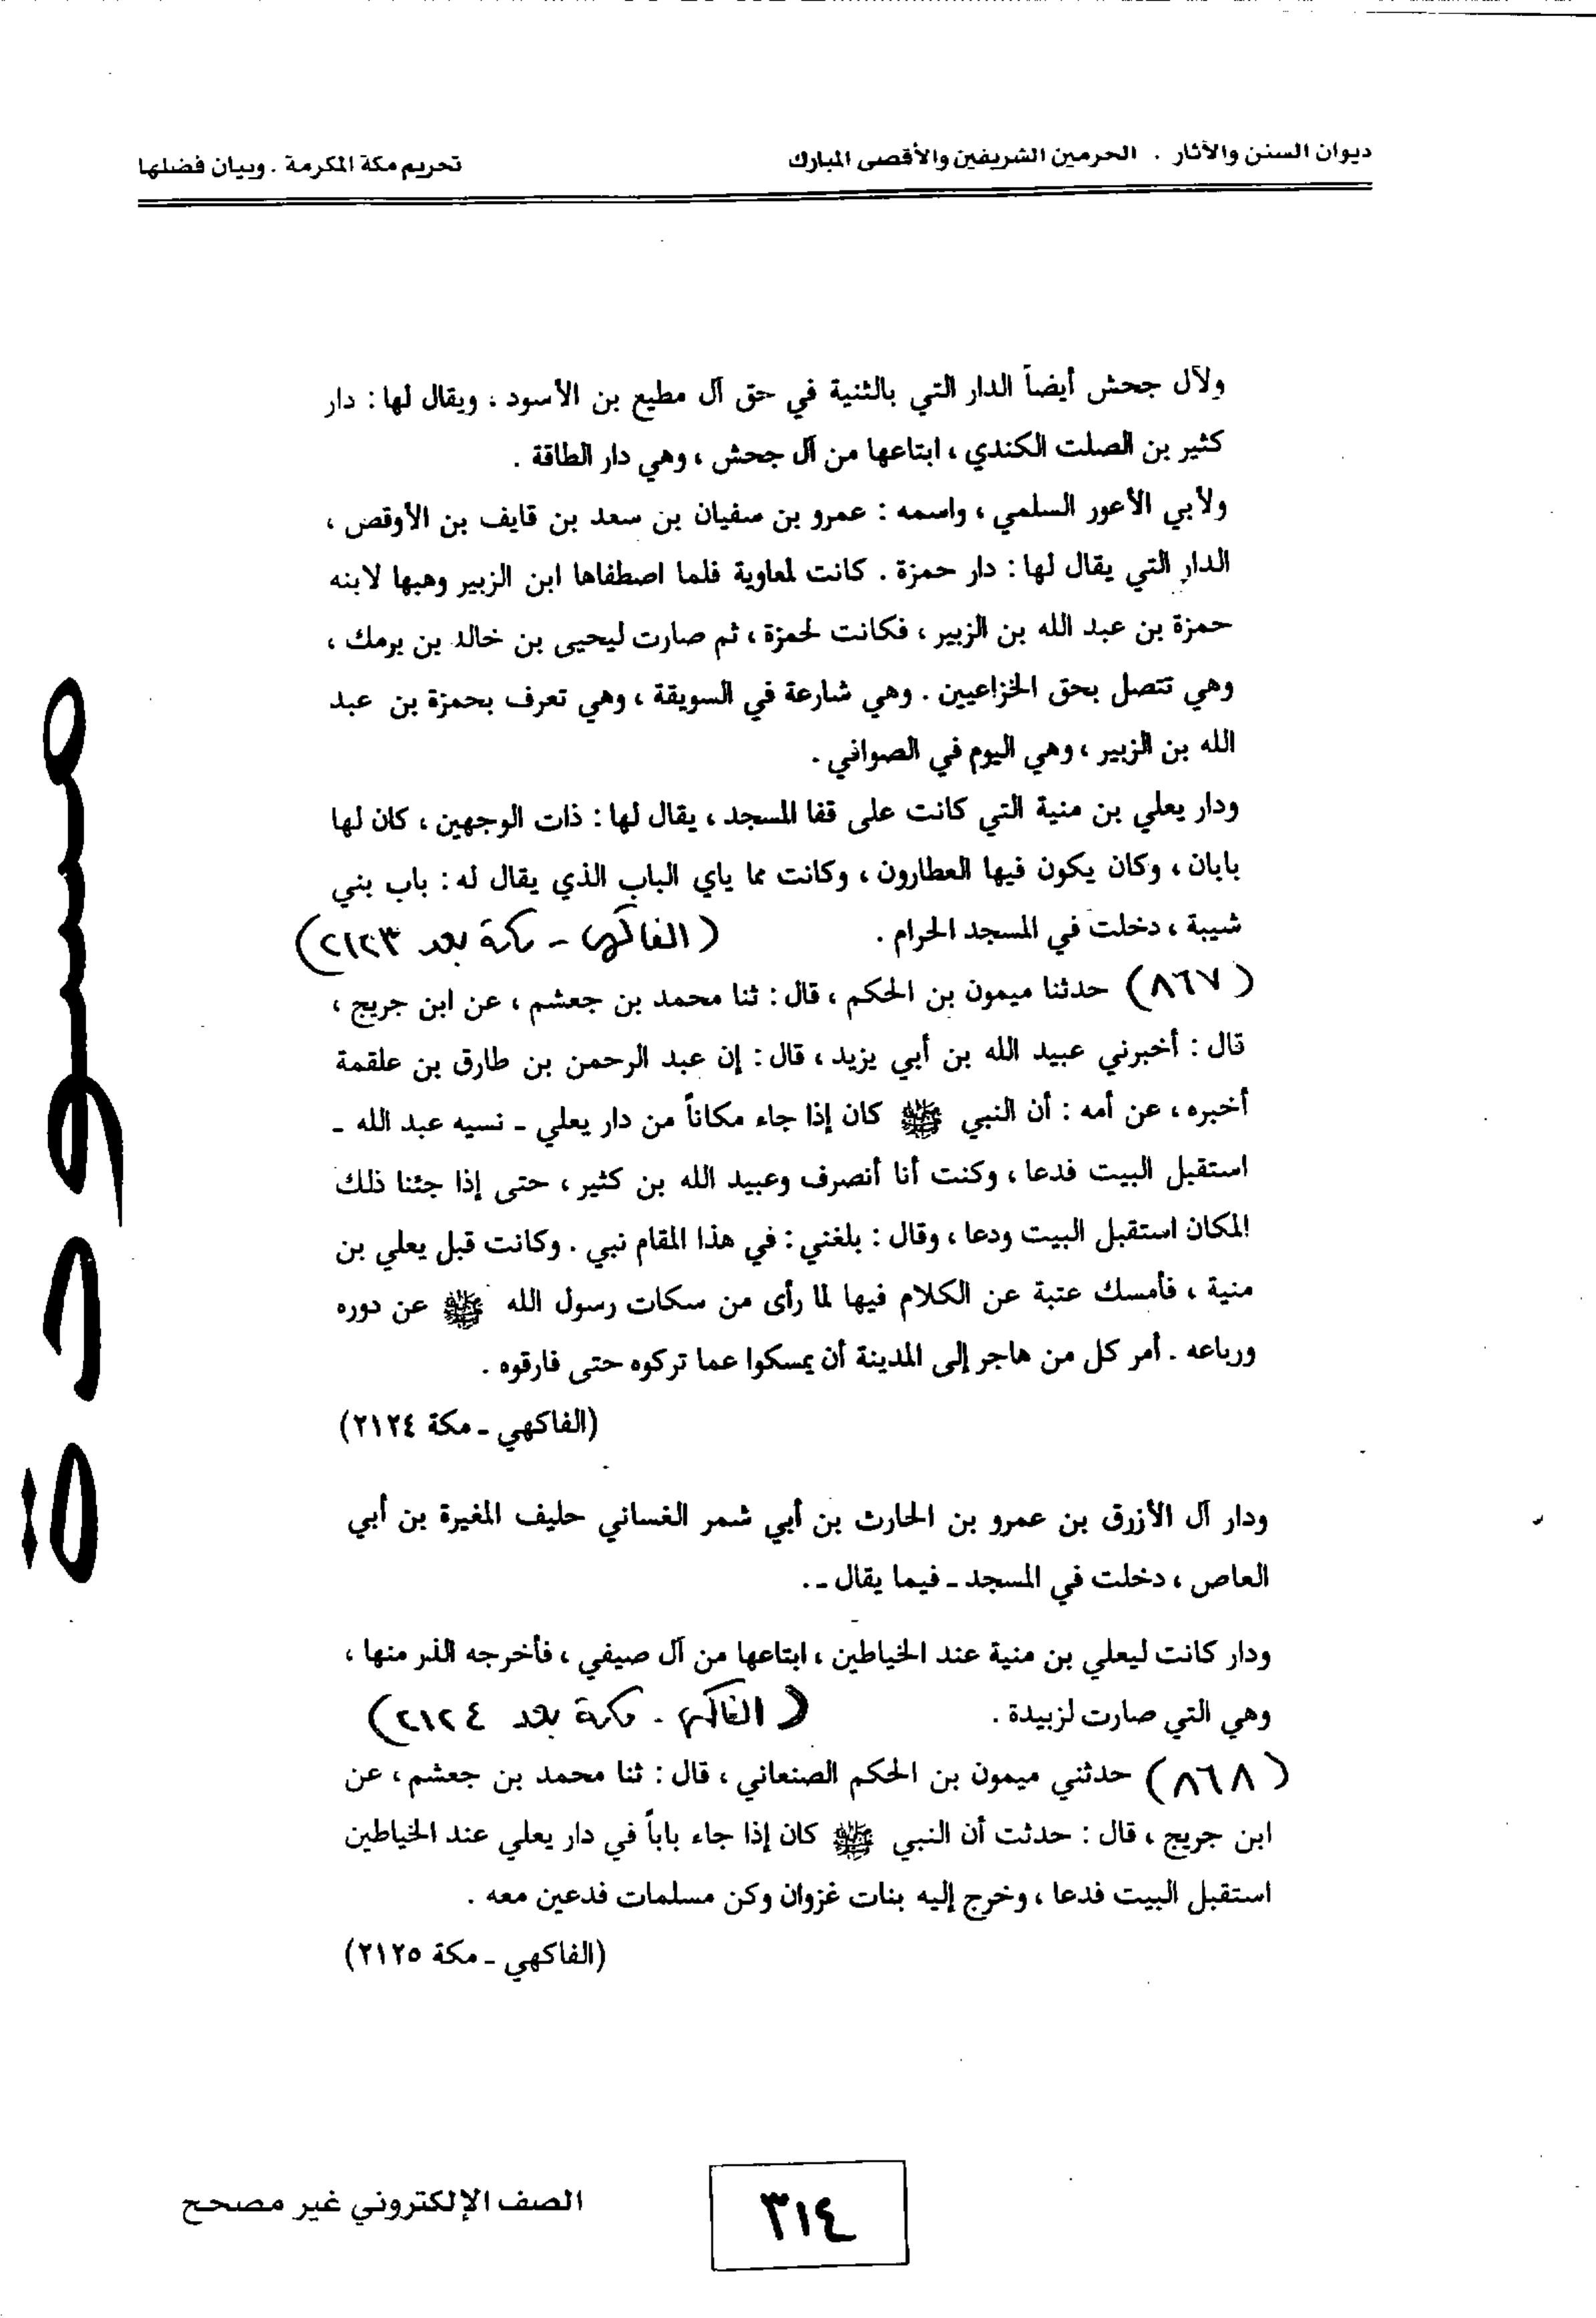 ديوان السنن والآثار . الحرمين الشريفين والأقصى المبارك
تحريم مكة المكرمة . وبيان فضلها
ولآل جحش أيضاً الدار التي بالثنية في حق آل مطيع بن الأسود ، ويقال لها : دار
كثير بن الصلت الكندي ، ابتاعها من آل جحش ، وهي دار الطاقة .
ولأبي الأعور السلمي ، واسمه : عمرو بن سفيان بن سعد بن قايف بن الأوقص ،
الدار التي يقال لها : دار حمزة . كانت لمعاوية فلما اصطفاها ابن الزبير وهبها لابنه
حمزة بن عبد الله بن الزبير ، فكانت لحمزة ، ثم صارت ليحيى بن خالد بن برمك ،
وهي تتصل بحق الخزاعيين . وهي شارعة في السويقة ، وهي تعرف بحمزة بن عبد
الله بن الزبير ، وهي اليوم في الصوافي .
ودار يعلي بن منية التي كانت على قفا المسجد ، يقال لها : ذات الوجهين ، كان لها
بابان ، وكان يكون فيها العطارون ، وكانت مما ياي الباب الذي يقال له : باب بني
شيبة ، دخلت في المسجد الحرام . (الفاكهي - مكة بعد ٢١٢٣)
(٨٦٧) حدثنا ميمون بن الحكم ، قال : ثنا محمد بن جعشم ، عن ابن جريج ،
قال : أخبرني عبيد الله بن أبي يزيد ، قال : إن عبد الرحمن بن طارق بن علقمة
أخبره ، عن أمه : أن النبي ﷺ كان إذا جاء مكاناً من دار يعلي - نسيه عبد الله -
استقبل البيت فدعا ، وكنت أنا أنصرف وعبيد الله بن كثير ، حتى إذا جئنا ذلك
المكان استقبل البيت ودعا ، وقال : بلغني : في هذا المقام نبي . وكانت قبل يعلي بن
منية ، فأمسك عتبة عن الكلام فيها لما رأى من سكات رسول الله ﷺ عن دوره
ورباعه . أمر كل من هاجر إلى المدينة أن يمسكوا عما تركوه حتى فارقوه .
(الفاكهي - مكة ٢١٢٤)
ودار آل الأزرق بن عمرو بن الحارث بن أبي شمر الغساني حليف المغيرة بن أبي
العاص ، دخلت في المسجد - فيما يقال - .
ودار كانت ليعلي بن منية عند الخياطين ، ابتاعها من آل صيفي ، فأخرجه الذر منها ،
وهي التي صارت لزبيدة . (الفاكهي - مكة بعد ٢١٢٤)
(٨٦٨) حدثني ميمون بن الحكم الصنعاني ، قال : ثنا محمد بن جعشم ، عن
ابن جريج ، قال : حدثت أن النبي ﷺ كان إذا جاء باباً في دار يعلي عند الخياطين
استقبل البيت فدعا ، وخرج إليه بنات غزوان وكن مسلمات فدعين معه .
(الفاكهي - مكة ٢١٢٥)
مسودة
٣١٤
الصف الإلكتروني غير مصحح